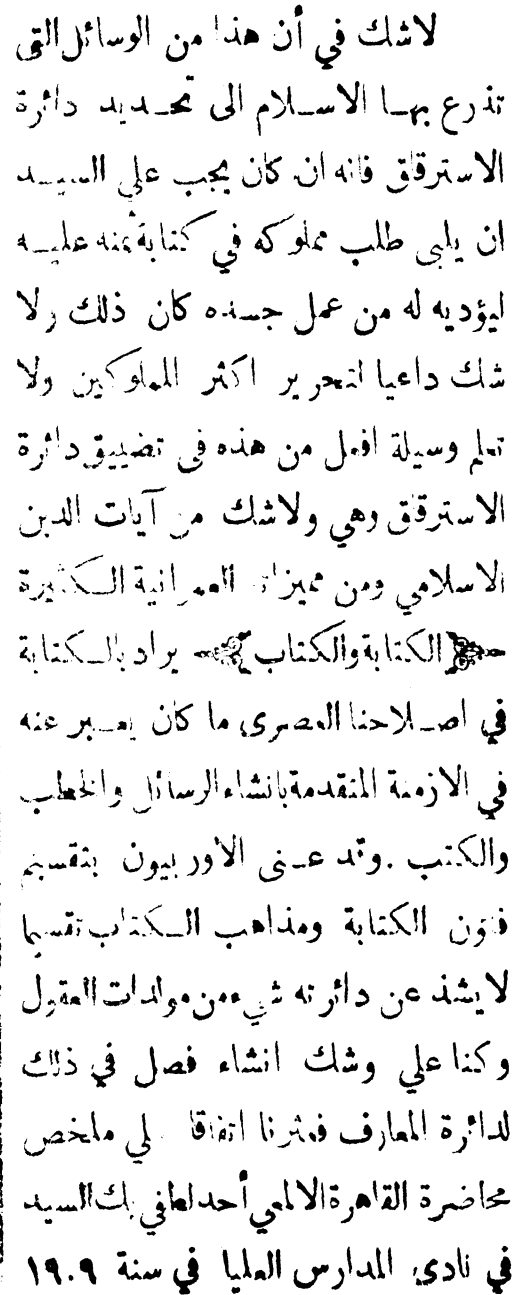 لاشك في أن هذا من الوسائل التى
تذرع بهـا الاسـلام الى تحـديد دائرة
الاسترقاق فانه ان كان يجب علي السيـد
ان يلبى طلب مملوكه في كتابة ثمنه عليـه
ليؤديه له من عمل جسده كان ذلك ولا
شك داعيا لتحرير اكثر المملوكين ولا
تعلم وسيلة افعل من هذه فى تضييق دائرة
الاسترقاق وهي ولاشك من آيات الدين
الاسلامي ومن مميزاته العمرانية الـكثيرة
﴿الكتابة والكتاب﴾ يراد بالـكتابة
في اصـلاحنا العصرى ما كان يعـبر عنه
في الازمنة المتقدمة بانشاء الرسائل والخطب
والكتب . وقد عـنى الاوربيون بتقسيم
فنون الكتابة ومذاهب الـكتاب تقسيما
لايشذ عن دائرته شيء من مولدات العقول
وكنا علي وشك انشاء فصل في ذلك
لدائرة المعارف فعثرنا اتفاقا لي ملخص
محاضرة القاهرة الالمعي أحد لطفي بك السيد
في نادى المدارس العليا في سنة ١٩٠٩